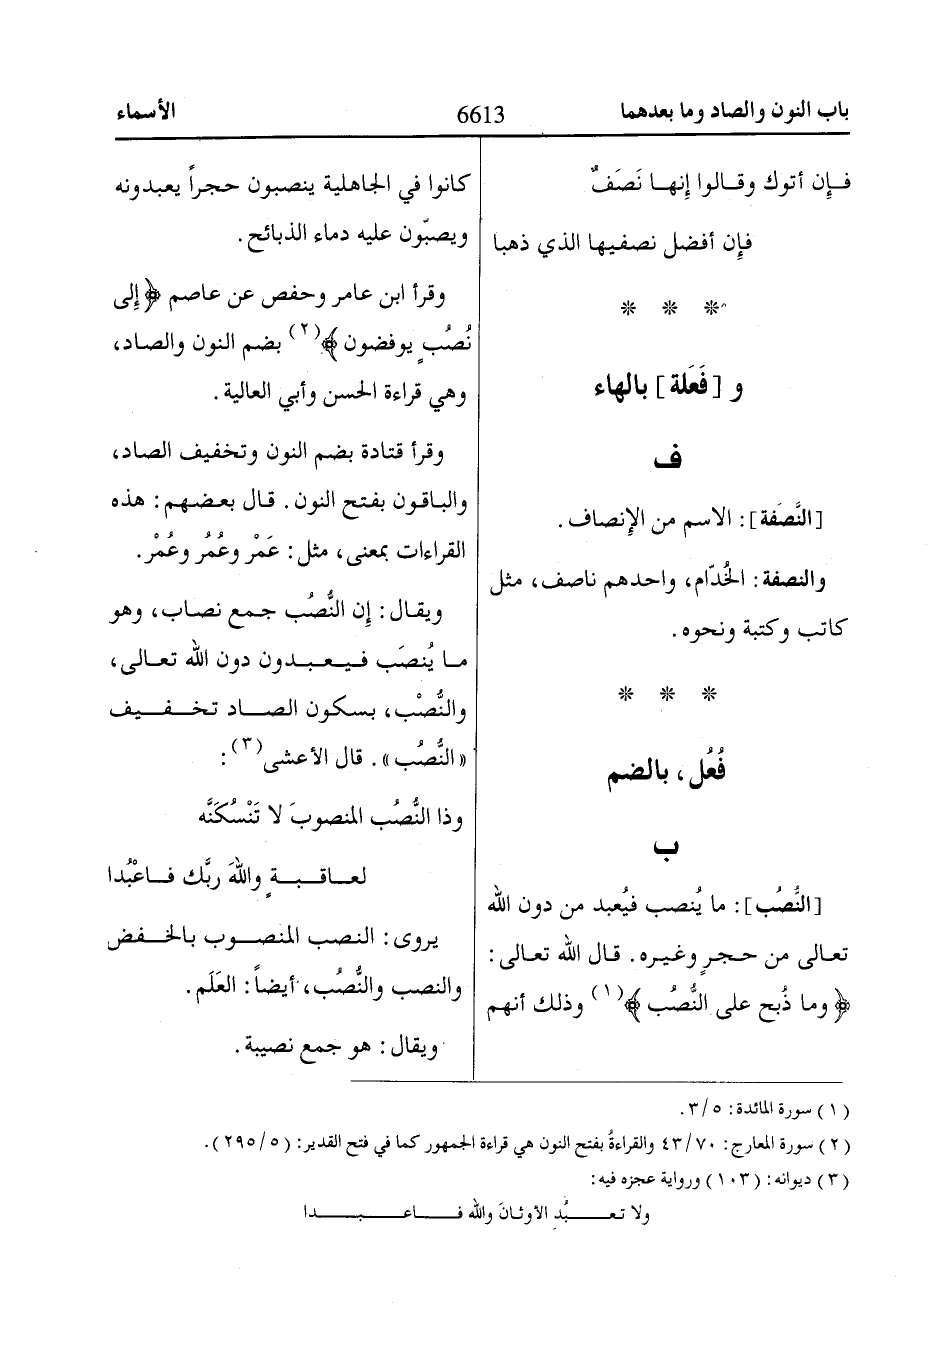 باب النون والصاد وما بعدهما 6613 الأسماء
فإن أتوك وقالوا إنها نَصَفٌ
فإن أفضل نصفيها الذي ذهبا
* * *
و [فَعَلة] بالهاء
ف
[النَّصَفة]: الاسم من الإنصاف.
والنصفة: الخُدّام، واحدهم ناصف، مثل
كاتب وكتبة ونحوه.
* * *
فُعُل، بالضم
ب
[النُّصُب]: ما يُنصب فيُعبد من دون الله
تعالى من حجرٍ وغيره. قال الله تعالى:
﴿وما ذُبح على النُّصُب﴾(١) وذلك أنهم
كانوا في الجاهلية ينصبون حجراً يعبدونه
ويصبّون عليه دماء الذبائح.
وقرأ ابن عامر وحفص عن عاصم ﴿إلى
نُصُبٍ يوفضون﴾(٢) بضم النون والصاد،
وهي قراءة الحسن وأبي العالية.
وقرأ قتادة بضم النون وتخفيف الصاد،
والباقون بفتح النون. قال بعضهم: هذه
القراءات بمعنى، مثل: عَمْر وعُمُر وعُمْر.
ويقال: إن النُّصُب جمع نصاب، وهو
ما يُنصَب فيعبدون دون الله تعالى،
والنُّصْب، بسكون الصاد تخفيف
«النُّصُب». قال الأعشى(٣):
وذا النُّصُب المنصوبَ لا تَنْسُكَنَّه
لعاقبةٍ واللهَ ربَّك فاعْبُدا
يروى: النصب المنصوب بالخفض
والنصب والنُّصُب، أيضاً: العَلَم.
ويقال: هو جمع نصيبة.
(١) سورة المائدة: ٣/٥.
(٢) سورة المعارج: ٤٣/٧٠ والقراءةُ بفتح النون هي قراءة الجمهور كما في فتح القدير: (٢٩٥/٥).
(٣) ديوانه: (١٠٣) ورواية عجزه فيه:
ولا تعبُد الأوثانَ والله فاعبدا